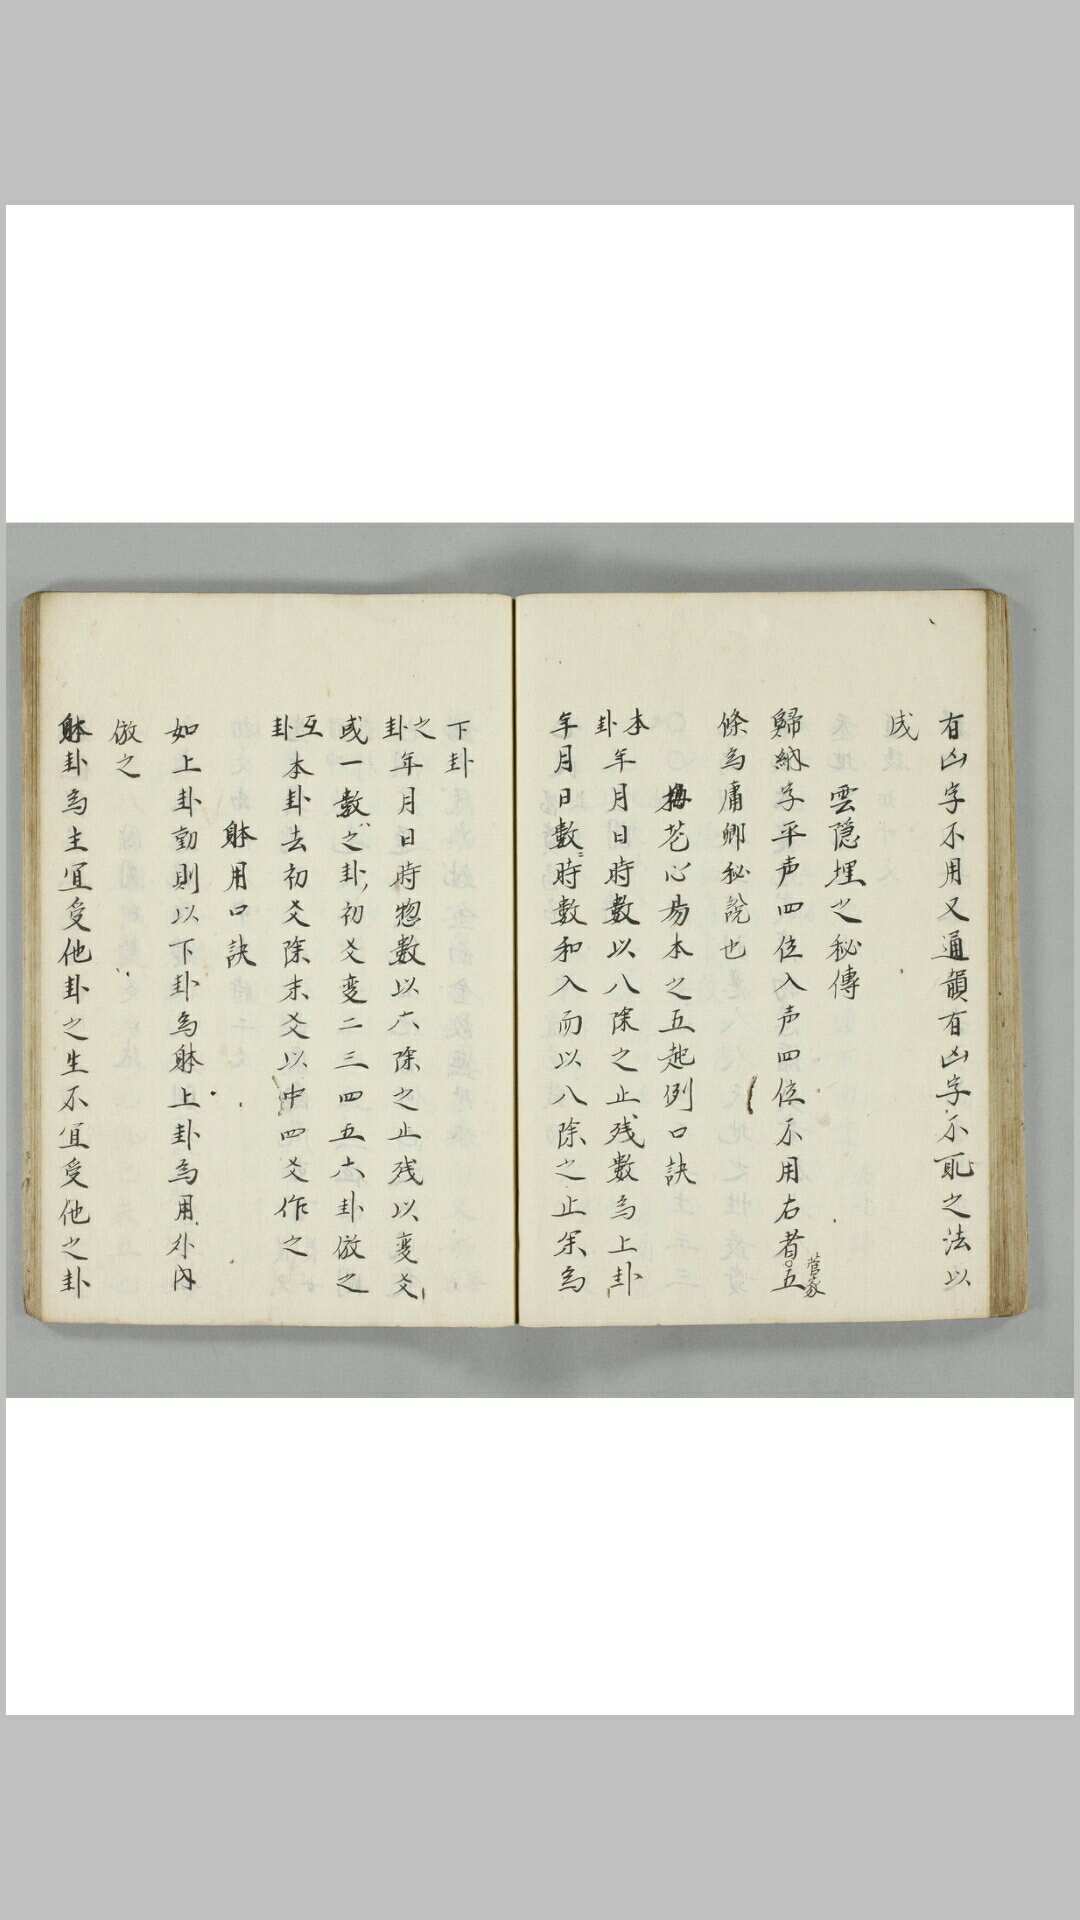 有凶字不用又通韻有凶字不取之法以
成
雲隠埋之秘傳
歸納字平声四位入声四位不用右者五
菅家
條為庸卿秘說也
梅花心易本之五起例口訣
本卦年月日時數以八除之止残數為上卦
年月日數時數和入而以八除之止余為
下卦
之卦年月日時惣數以六除之止残以変爻
或一數之卦初爻変二三四五六卦倣之
互卦本卦去初爻除末爻以中四爻作之
躰用口訣
如上卦動則以下卦為躰上卦為用外內
倣之
躰卦為主宜受他卦之生不宜受他之卦